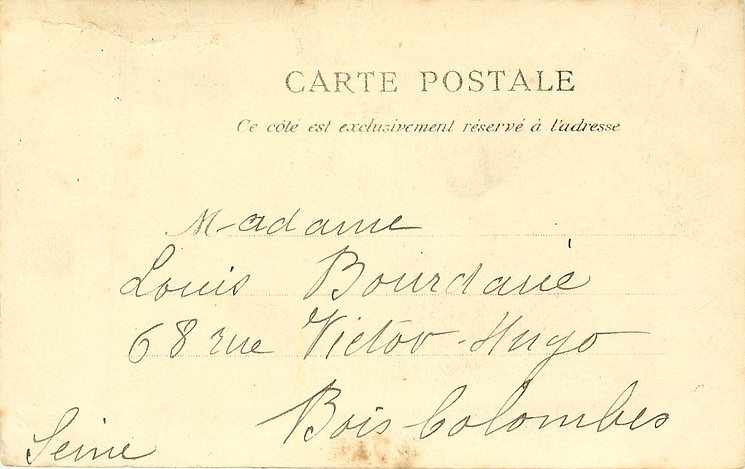 CARTE POSTALE
Ce côté est exclusivement réservé à l'adresse
Madame
Louis Bourdarié
68 rue Victor-Hugo
Bois Colombes
Seine